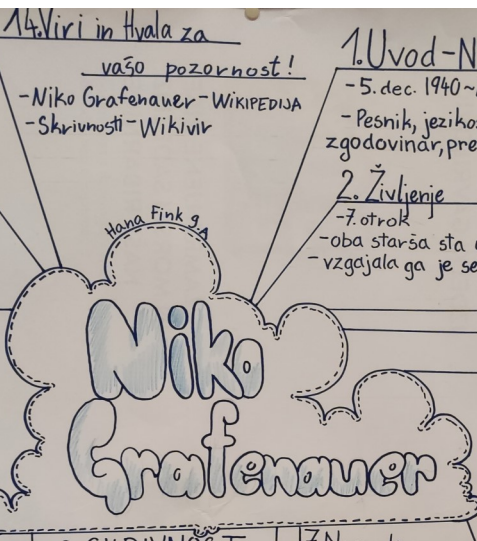 14. Viri in Hvala za
vašo pozornost!
-Niko Grafenauer-WIKIPEDIJA
-Skrivnosti-Wikivir
1. Uvod-N
-5. dec. 1940~
-Pesnik, jeziko
zgodovinar, pre
2. Življenje
-7. otrok
-oba starša sta
-vzgajala ga je se
Hana Fink 9.A
Niko
Grafenauer